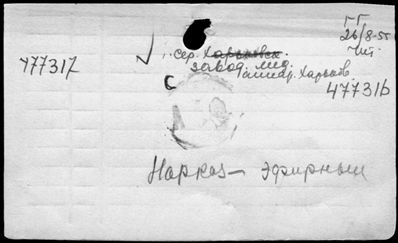 ГГ
26/8-55
чт.
г. сер. Харьковск.
завод. мед.
Харьков
477317
С
477316
Наркоз – эфирный